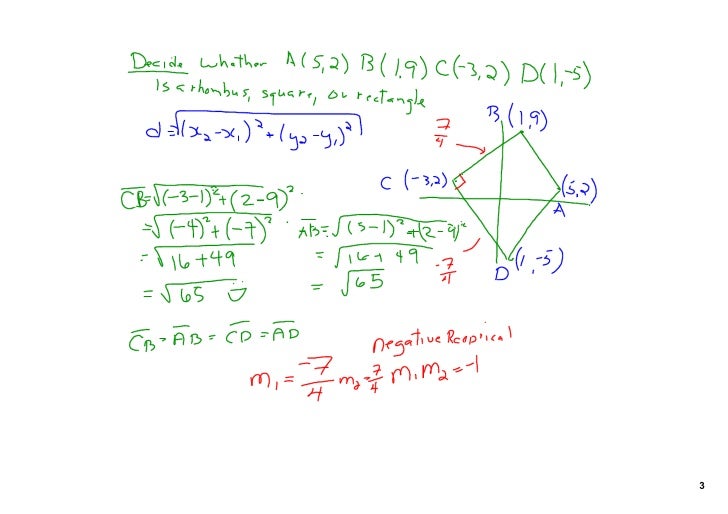 Decide whether A(5,2) B(1,9) C(-3,2) D(1,-5)
is a rhombus, square, or rectangle
d=√(x₂-x₁)²+(y₂-y₁)²
B (1,9)
7/4
C (-3,2)
(5,2)
A
-7/4
D (1,-5)
CB=√(-3-1)²+(2-9)²
=√(-4)²+(-7)²
=√16+49
=√65
AB=√(5-1)²+(2-9)²
=√16+49
=√65
CB=AB=CD=AD
negative Recprical
m₁=-7/4 m₂=7/4 m₁m₂=-1
3